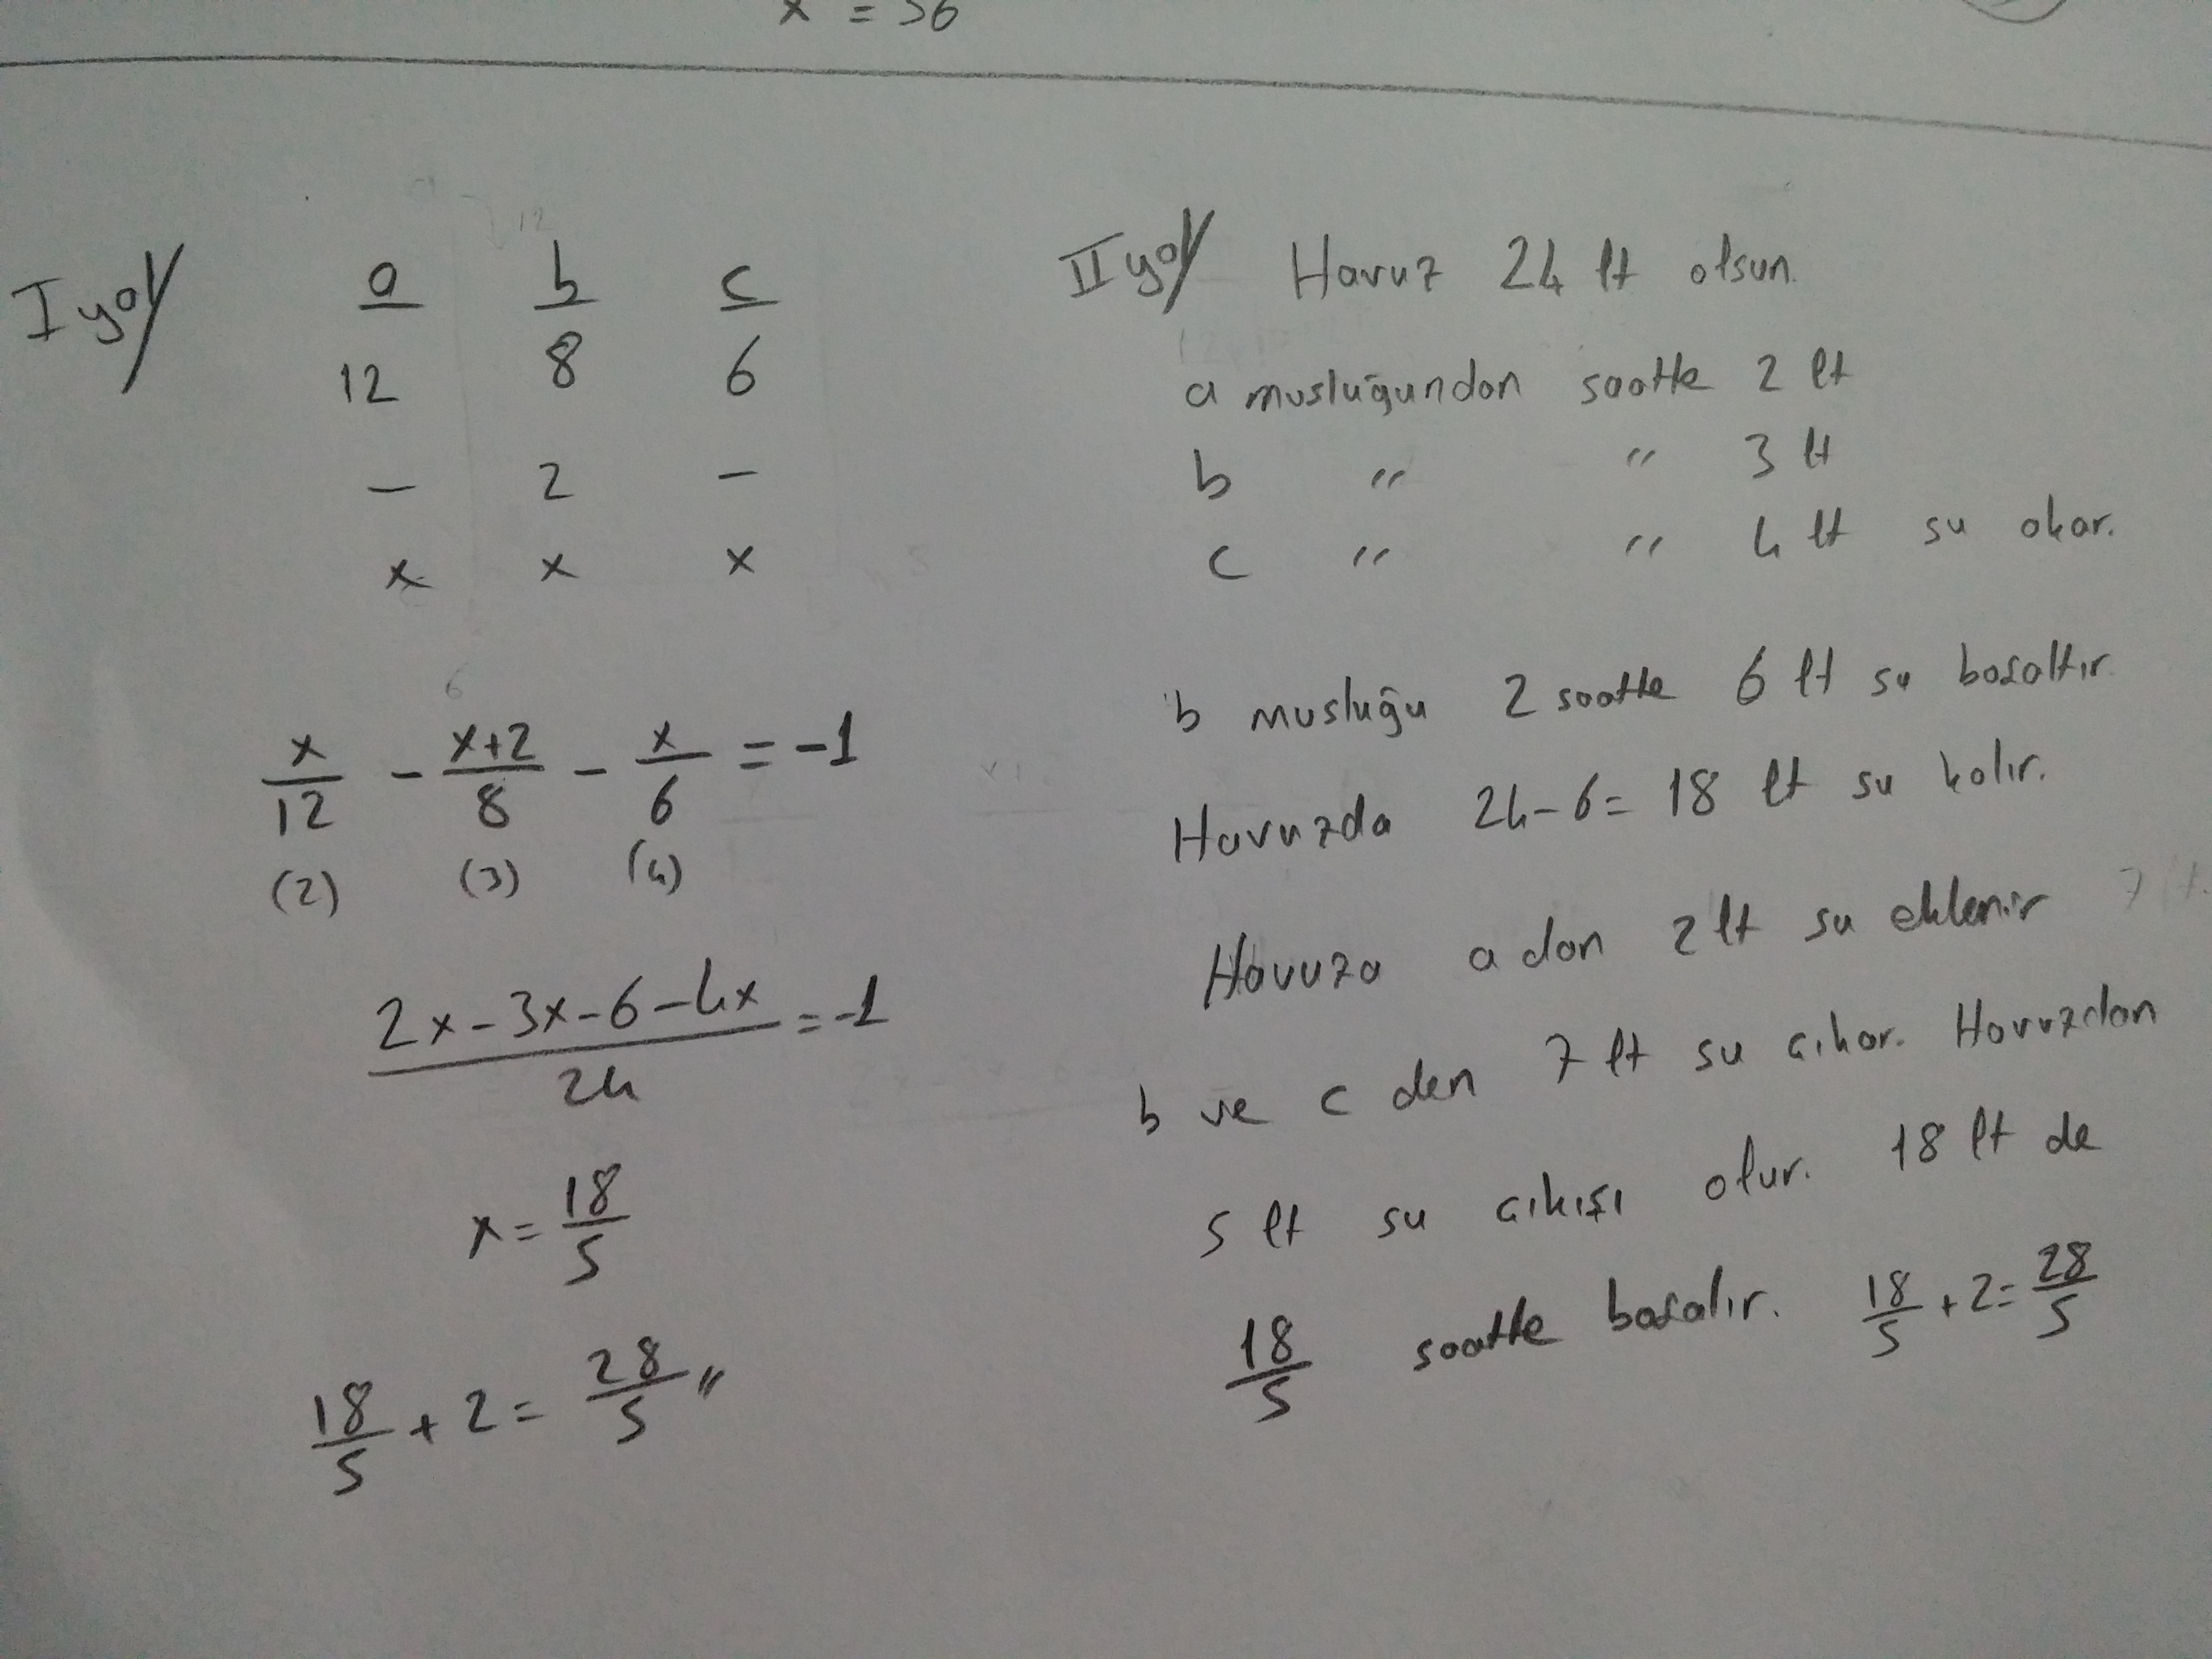 x = 36
I yol
a b c
12 8 6
- 2 -
x x x
x/12 - (x+2)/8 - x/6 = -1
(2) (3) (4)
(2x-3x-6-4x)/24 = -1
x = 18/5
18/5 + 2 = 28/5 "
II yol Havuz 24 lt olsun.
a musluğundan saatte 2 lt
b " " 3 lt
c " " 4 lt su akar.
b musluğu 2 saatte 6 lt su boşaltır.
Havuzda 24-6= 18 lt su kalır.
Havuza a dan 2 lt su eklenir
b ve c den 7 lt su çıkar. Havuzdan
5 lt su çıkışı olur. 18 lt de
18/5 saatte boşalır. 18/5 + 2 = 28/5